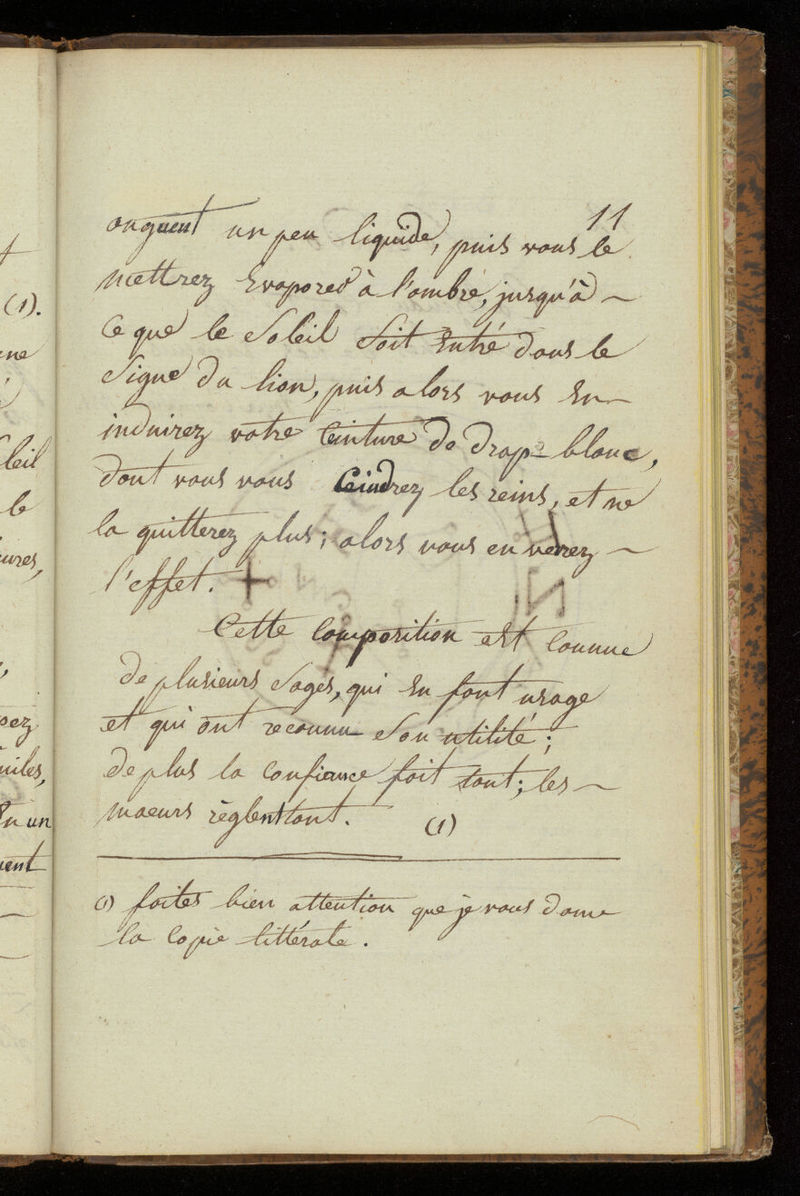 11
onguent un peu liquide, puis vous le
mettrez Evaporer à l'ombre, jusqu'à ~
Ce que le Soleil soit Entré dans le
Signe du lion, puis alors vous En-
induirez votre Ceinture de drap-blanc,
dont vous vous Ceindrez les reins, et ne
la quitterez plus; alors vous en verez ~
l'effet. +
Cette Composition est Connue
de plusieurs Sages, qui En font usage
et qui ont reconnu Son utilité;
de plus la Confience fait tout; les ~
moeurs règlent tout. (1)
(1) faites bien attention que je vous done
la Copie littérale.
(1).
me
leil
le
ures,
pez
uiles,
En un
uent